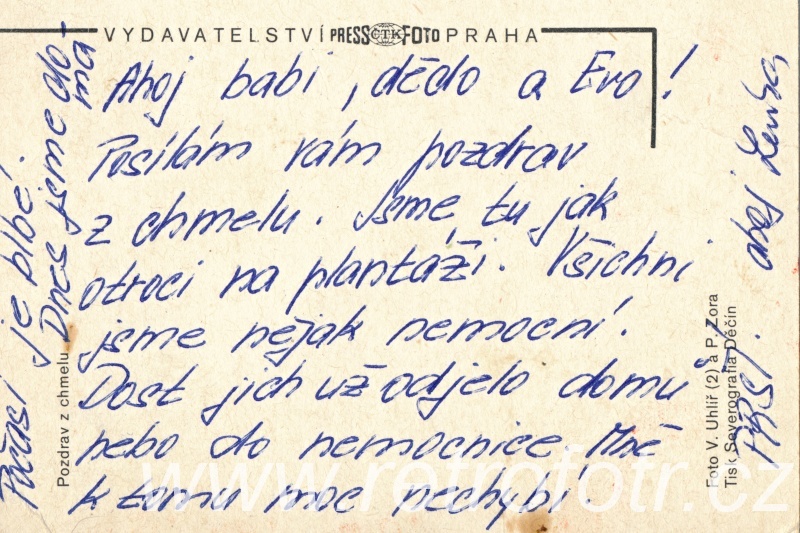 VYDAVATELSTVÍ PRESSČTKFOTO PRAHA
Ahoj babi, dědo a Evo!
Posílám vám pozdrav
z chmelu. Jsme tu jak
otroci na plantáži. Všichni
jsme nějak nemocní.
Dost jich už odjelo domů
nebo do nemocnice. Mně
k tomu moc nechybí.
Počasí je blbé.
Dnes jsme do-
ma
Prší.
ahoj Lenka
Pozdrav z chmelu
Foto V. Uhlíř (2) a P. Zora
Tisk Severografia Děčín
www.retrofotr.cz